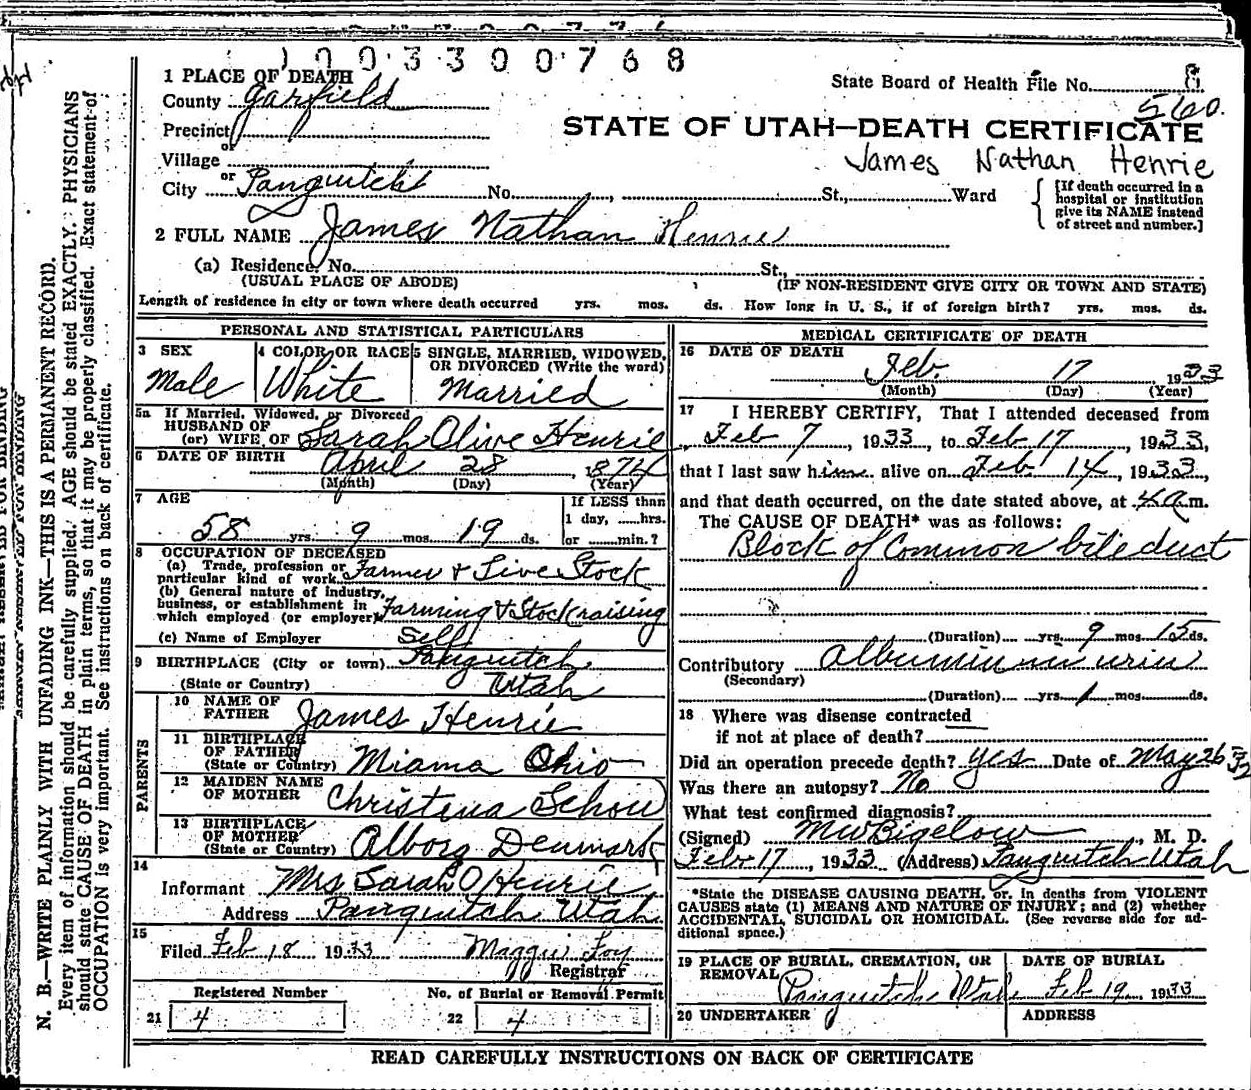 1003300768
1 PLACE OF DEATH
State Board of Health File No. 8
County Garfield
560.
Precinct
or
STATE OF UTAH—DEATH CERTIFICATE
Village
James Nathan Henrie
or
City Panguitch No. St., Ward
[If death occurred in a hospital or institution give its NAME instead of street and number.]
2 FULL NAME James Nathan Henrie
(a) Residence, No. St.,
(USUAL PLACE OF ABODE) (IF NON-RESIDENT GIVE CITY OR TOWN AND STATE)
Length of residence in city or town where death occurred yrs. mos. ds. How long in U. S., if of foreign birth? yrs. mos. ds.
PERSONAL AND STATISTICAL PARTICULARS
3 SEX
Male
4 COLOR OR RACE
White
5 SINGLE, MARRIED, WIDOWED,
OR DIVORCED (Write the word)
Married
5a If Married, Widowed, or Divorced
HUSBAND OF
(or) WIFE OF Sarah Olive Henrie
6 DATE OF BIRTH April 28 1874
(Month) (Day) (Year)
7 AGE
58 yrs. 9 mos. 19 ds.
If LESS than
1 day, hrs.
or min.?
8 OCCUPATION OF DECEASED
(a) Trade, profession or
particular kind of work Farmer & Live Stock
(b) General nature of industry,
business, or establishment in
which employed (or employer) Farming & Stock raising
(c) Name of Employer Self
9 BIRTHPLACE (City or town) Panguitch
(State or Country) Utah
PARENTS
10 NAME OF
FATHER James Henrie
11 BIRTHPLACE
OF FATHER
(State or Country) Miama Ohio
12 MAIDEN NAME
OF MOTHER Christena Schow
13 BIRTHPLACE
OF MOTHER
(State or Country) Alborg Denmark
14
Informant Mrs Sarah O Henrie
Address Panguitch Utah
15
Filed Feb 18 1933 Maggie Foy
Registrar
Registered Number
21 4
No. of Burial or Removal Permit
22 4
MEDICAL CERTIFICATE OF DEATH
16 DATE OF DEATH
Feb. 17 1933
(Month) (Day) (Year)
17 I HEREBY CERTIFY, That I attended deceased from
Feb 7, 1933, to Feb 17, 1933,
that I last saw him alive on Feb 14, 1933,
and that death occurred, on the date stated above, at 4 a m.
The CAUSE OF DEATH* was as follows:
Block of Common bile duct
(Duration) yrs. 9 mos. 15 ds.
Contributory Albumin in urin
(Secondary)
(Duration) yrs. 1 mos. ds.
18 Where was disease contracted
if not at place of death?
Did an operation precede death? Yes Date of May 26 32
Was there an autopsy? No
What test confirmed diagnosis?
(Signed) MW Bigelow, M. D.
Feb 17, 1933 (Address) Panguitch Utah
*State the DISEASE CAUSING DEATH, or, in deaths from VIOLENT
CAUSES state (1) MEANS AND NATURE OF INJURY; and (2) whether
ACCIDENTAL, SUICIDAL OR HOMICIDAL. (See reverse side for ad-
ditional space.)
19 PLACE OF BURIAL, CREMATION, OR
REMOVAL
Panguitch Utah
DATE OF BURIAL
Feb 19 1933
20 UNDERTAKER
ADDRESS
READ CAREFULLY INSTRUCTIONS ON BACK OF CERTIFICATE
N. B.—WRITE PLAINLY WITH UNFADING INK—THIS IS A PERMANENT RECORD.
Every item of information should be carefully supplied. AGE should be stated EXACTLY. PHYSICIANS
should state CAUSE OF DEATH in plain terms, so that it may be properly classified. Exact statement of
OCCUPATION is very important. See instructions on back of certificate.